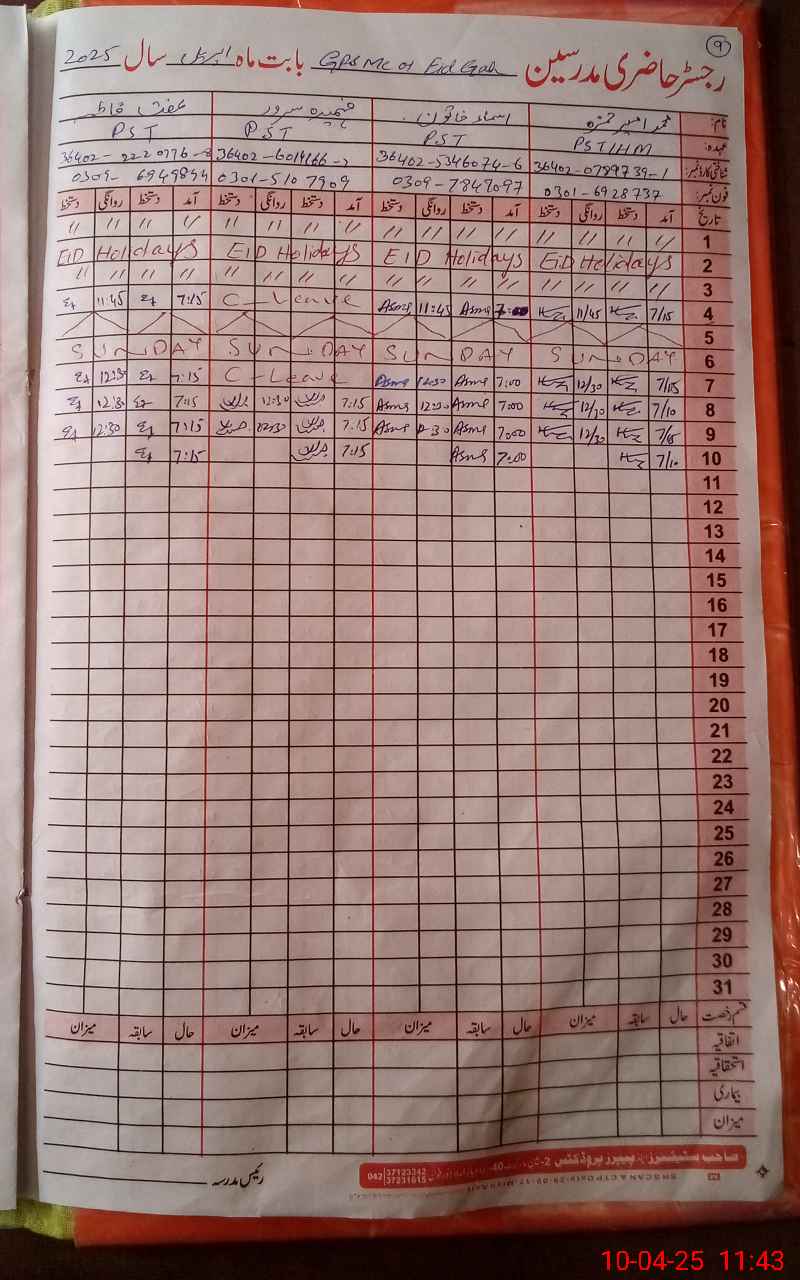 ۹
رجسٹر حاضری مدرسین GPS MC Eid Gah بابت ماہ اپریل سال 2025
نام: محمد امیر حمزہ اسماء خاتون فہمیدہ سرور عفت فاطمہ
عہدہ: PST/HM PST PST PST
شناختی کارڈ نمبر: 36402-0789739-1 36402-5346074-6 36402-6014166-2 36402-2220776-8
فون نمبر: 0301-6928737 0309-7847097 0301-5107909 0309-6949894
تاریخ آمد دستخط روانگی دستخط آمد دستخط روانگی دستخط آمد دستخط روانگی دستخط آمد دستخط روانگی دستخط
1 // // // // // // // // // // // // // // // //
2 EID Holidays EID Holidays EID Holidays EID Holidays
3 // // // // // // // // // // // // // // // //
4 7/15 11/45 7:00 Asma 11:45 Asma C-Leave 7:15 11:45
5
6 SUNDAY SUNDAY SUNDAY SUNDAY
7 7/15 12/30 7:00 Asma 12:30 Asma C-Leave 7:15 12:30
8 7/10 12/30 7:00 Asma 12:30 Asma 7:15 12:30 7:15 12:30
9 7/15 12/30 7:00 Asma 12:30 Asma 7:15 12:30 7:15 12:30
10 7/10 7:00 Asma 7:15 7:15
11
12
13
14
15
16
17
18
19
20
21
22
23
24
25
26
27
28
29
30
31
قسم رخصت حال سابقہ میزان حال سابقہ میزان حال سابقہ میزان حال سابقہ میزان
اتفاقیہ
استحقاقیہ
بیماری
میزان
صاحب سٹیشنرز پیپرز پروڈکٹس
042 37123242
37231615
رئیس مدرسہ
10-04-25 11:43